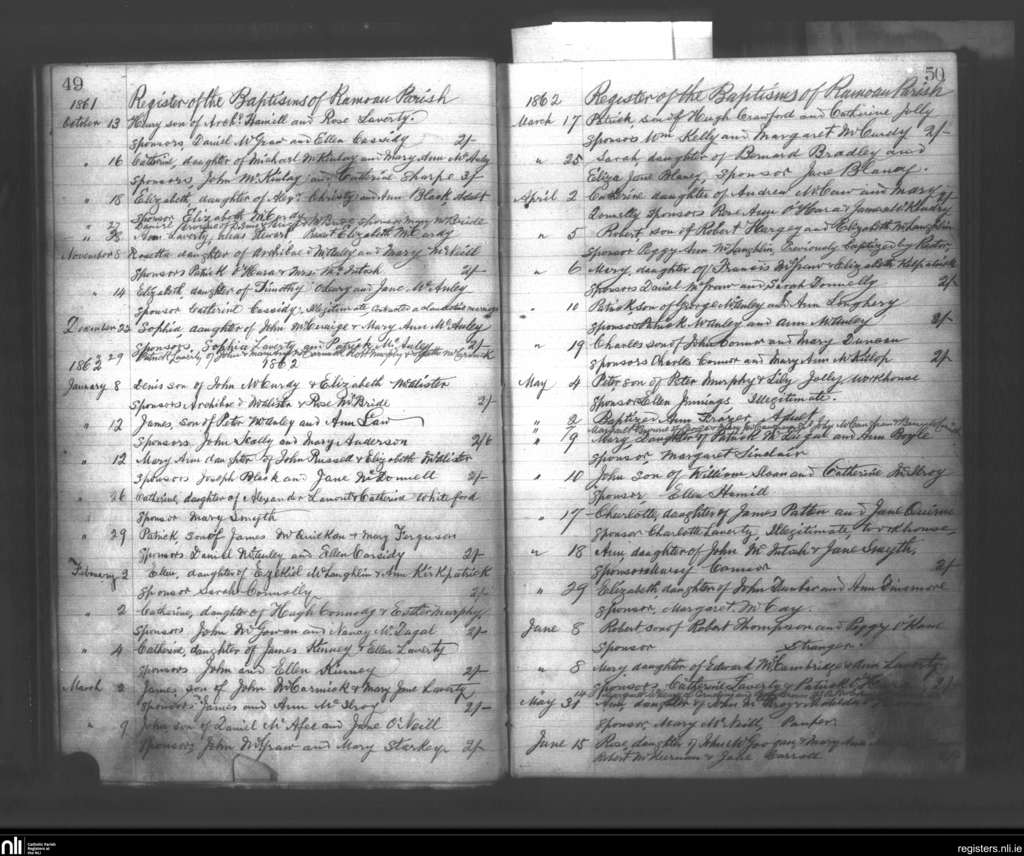 49
1861 Register of the Baptisms of Ramoan Parish
October 13 Henry son of Archd. Hamill and Rose Laverty.
Sponsors Daniel McGraw and Ellen Cassidy 2/-
" 16 Catherine, daughter of Michael McKinlay and Mary Ann McAuley
Sponsors, John McKinlay and Catherine Sharpe 3/-
" 18 Elizabeth, daughter of Alexr. Christy and Ann Black Adult
Sponsor Elizabeth McCurdy
" 27 Daniel son of McBride sponsor Mary McBride
" 28 Ann Laverty, alias Stewart Elizabeth McCurdy
November 8 Rose daughter of Archibald McAuley and Mary McNeill
Sponsors Patrick O'Hara & Mrs. McIntosh 2/-
" 14 Elizabeth daughter of Timothy Cleary and Jane McAuley
Sponsor Catherine Cassidy, Illegitimate, Contracted a clandestine marriage
December 22 Sophia daughter of John McKeaige & Mary Ann McAuley
Sponsors, Sophia Laverty and Patrick McAuley 2/-
29 Patrick Laverty of John & Mary Ann McCormick Robt Murphy & McCormick
1862 1862
January 8 Denis son of John McCurdy & Elizabeth McAlister
Sponsors Archibald McAlister & Rose McBride 2/-
" 12 James, son of Peter McAuley and Ann Law
Sponsors John Scally and Mary Anderson 2/6
" 12 Mary Ann daughter of John Russell & Elizabeth McAlister
Sponsors Joseph Black and Jane McDonnell 2/-
" 26 Catherine, daughter of Alexander Lamont & Catherine Whiteford
Sponsor Mary Smyth
" 29 Patrick son of James McQuickan & Mary Ferguson
Sponsors Daniel McAuley and Ellen Cassidy 2/-
February 2 Ellen, daughter of Ezekiel McLaughlin & Ann Kirkpatrick
Sponsor Sarah Connolly 2/-
" 2 Catherine, daughter of Hugh Connody & Esther Murphy,
Sponsors John McGowan and Nancy McDugal 2/-
" 4 Catherine, daughter of James Kinney & Ellen Laverty
Sponsors John and Ellen Kinney 2/-
March 2 James, son of John McCormick & Mary Jane Laverty
Sponsors James and Ann McIlroy 2/-
" 9 John son of Daniel McAfee and Jane O'Neill
Sponsors John McGraw and Mary Starkey 2/-
50
1862 Register of the Baptisms of Ramoan Parish
March 17 Patrick, son of Hugh Crawford and Catherine Jolly
Sponsors Wm Kelly and Margaret McCurdy 2/-
" 25 Sarah daughter of Bernard Bradley and
Eliza Jane Blaney, Sponsor Jane Blaney.
April 2 Catherine daughter of Andrew McCaw and Mary
Donnelly sponsors Rose Ann O'Hara & James McKendry 2/-
" 5 Robert, son of Robert Hargey and Elizabeth McLaughlin
Sponsor Peggy Ann McLaughlin, Previously baptized by Rector,
" 6 Mary, daughter of Francis McGraw & Elizabeth Kilpatrick
Sponsors Daniel McGraw and Sarah Donnelly 2/-
" 10 Patrick son of George McAuley and Ann Loughery
Sponsors Patrick McAuley and Ann McAuley 2/-
" 19 Charles son of John Connor and Mary Duncan
Sponsors Charles Connor and Mary Ann McKillop 2/-
May 4 Peter son of Peter Murphy & Lily Jolly Workhouse
Sponsor Ellen Jennings Illegitimate.
" 2 Baptized Ann Frazer Adult
" 9 Mary daughter of Patrick McDugal and Ann Boyle
Sponsor, Margaret Sinclair
" 10 John son of William Sloan and Catherine McIlroy
Sponsor Ellen Hamill
" 17 Charlotte, daughter of James Patton and Jane Quinn
Sponsor Charlotte Laverty, Illegitimate, workhouse,
" 18 Ann, daughter of John McIntosh & Jane Smyth,
Sponsors Connor 2/-
" 29 Elizabeth daughter of John Dunbar and Ann Dinsmore
Sponsor, Margaret McCay.
June 8 Robert son of Robert Thompson and Peggy O'Kane
Sponsor Stranger.
" 8 Mary daughter of Edward McCambridge & Ann Laverty
Sponsors Catherine Laverty & Patrick 2/-
14
May 31 Ann, daughter of John McIlroy
Sponsor, Mary McNeill, Pauper.
June 15 Rose, daughter of John McGowan & Mary Ann
Robert McKiernan & Jane Carroll
nli
Catholic Parish
Registers at
the NLI
registers.nli.ie